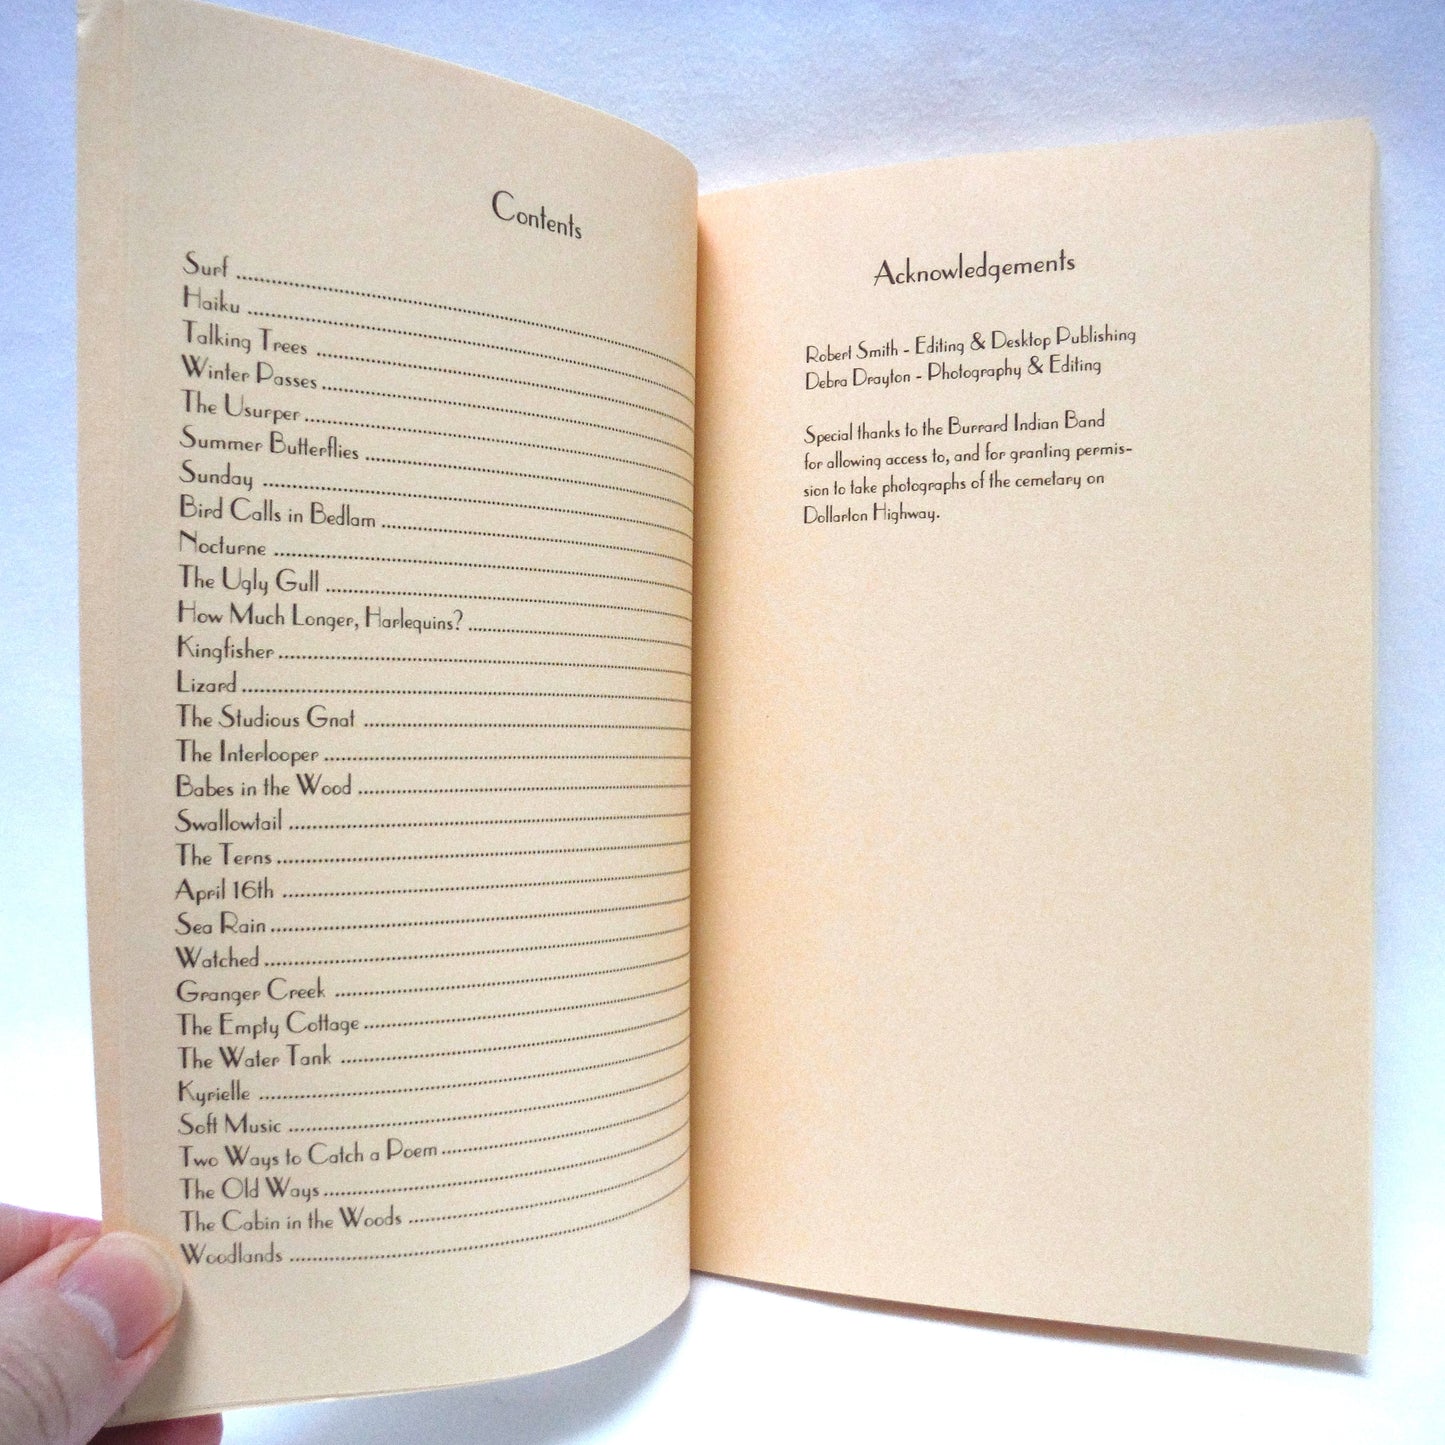 Contents
Surf
Haiku
Talking Trees
Winter Passes
The Usurper
Summer Butterflies
Sunday
Bird Calls in Bedlam
Nocturne
The Ugly Gull
How Much Longer, Harlequins?
Kingfisher
Lizard
The Studious Gnat
The Interlooper
Babes in the Wood
Swallowtail
The Terns
April 16th
Sea Rain
Watched
Granger Creek
The Empty Cottage
The Water Tank
Kyrielle
Soft Music
Two Ways to Catch a Poem
The Old Ways
The Cabin in the Woods
Woodlands
Acknowledgements
Robert Smith - Editing & Desktop Publishing
Debra Drayton - Photography & Editing
Special thanks to the Burrard Indian Band
for allowing access to, and for granting permis-
sion to take photographs of the cemetary on
Dollarton Highway.